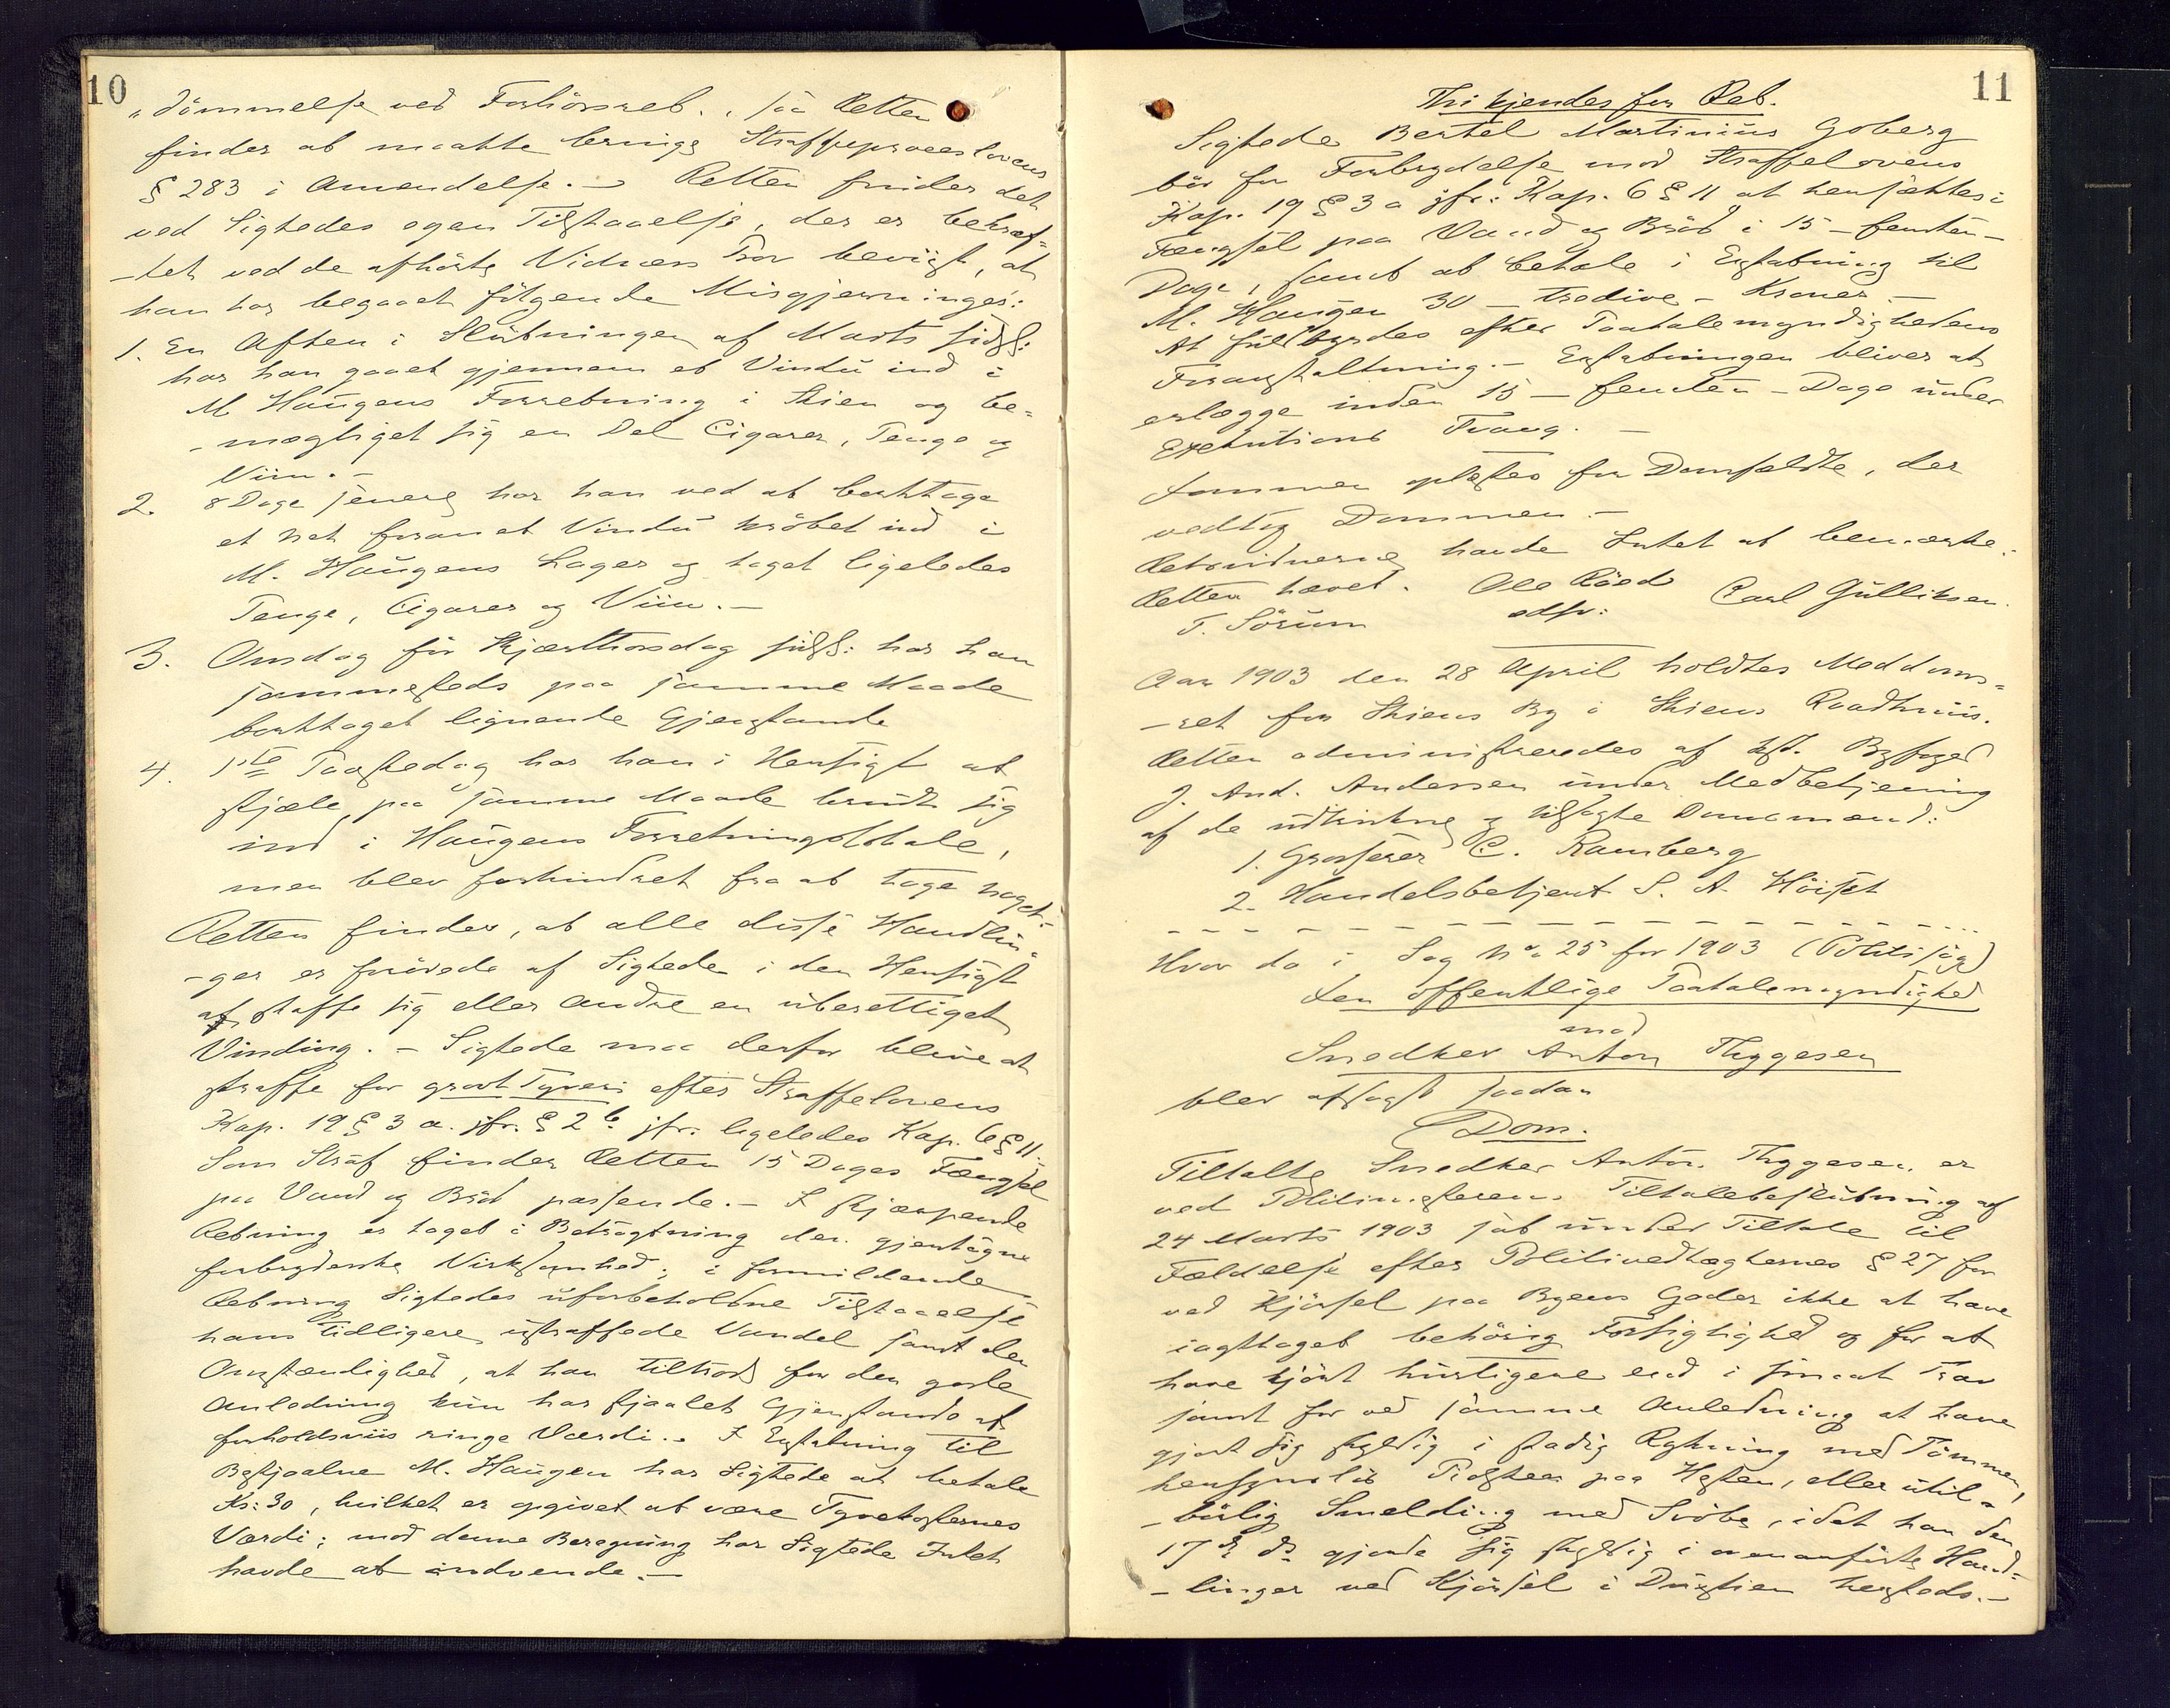 10
"dömmelse ved Forhörsret., saa Retten
finder at maatte bringe Straffeproceslovens
§ 283 i Anvendelse. - Retten finder det
ved Sigtedes egen Tilstaaelse, der er bekræf-
-tet ved de afhörte Vidners Prov bevist, at
han har begaaet fölgende Misgjerninger:
1. En Aften i Slutningen af Marts sidstl:
har han gaaet gjennem et Vindu ind i
M Haugens Forretning i Skien og be-
-mægtiget sig en Del Cigarer, Penge og
Viin. -
2. 8 Dage senere har han ved at borttage
et Net foran et Vindu kröbet ind i
M. Haugens Lager og taget ligeledes
Penge, Cigarer og Viin. -
3. Onsdag för Skjærthorsdag sidstl: har han
sammesteds paa samme Maade
borttaget lignende Gjenstande
4. 1ste Paaskedag har han i Hensigt at
stjæle, paa samme Maade brudt sig
ind i Haugens Forretningslokale,
men blev forhindret fra at tage noget. -
Retten finder, at alle disse Handlin
-ger er forövede af Sigtede i den Hensigt
at skaffe sig eller andre en uberettiget
Vinding. - Sigtede maa derfor blive at
straffe for grovt Tyveri efter Straffelovens
Kap. 19 § 3 a. jfr. § 2 b jfr. ligeledes Kap. 6 § 11. -
Som Straf finder Retten 15 Dages Fængsel
paa Vand og Bröd passende. - I skjærpende
Retning er taget i Betragtning den gjentagne
forbryderske Virksomhed; i formildende
Retning Sigtedes uforbeholdne Tilstaaelse
hans tidligere ustraffede Vandel samt den
Omstændighed, at han tiltrods for den gode
Anledning kun har stjaalet Gjenstande af
forholdsviis ringe Værdi. - I Erstatning til
Bestjaalne M. Haugen har Sigtede at betale
Kr: 30, hvilket er opgivet at være Tyvekosternes
Værdi; mod denne Beregning har Sigtede Intet
havde at indvende. -
11
Thi kjendes for Ret.
Sigtede Bertel Martinius Goberg
bör for Forbrydelse mod Straffelovens
Kap. 19 § 3 a jfr: Kap. 6 § 11 at hensættes i
Fængsel paa Vand og Bröd i 15 - femten -
Dage, samt at betale i Erstatning til
M. Haugen 30 - tredive - Kroner. -
At fuldbyrdes efter Paatalemyndighedens
Foranstaltning. - Erstatningen bliver at
erlægge inden 15 - femten - Dage under
Exekutions Tvang. -
Dommen oplæstes for Domfældte, der
vedtog Dommen. -
Retsvidnerne havde Intet at bemærke.
Retten hævet. Ole Röed Carl Gulliksen.
T. Sörum edsv:
Aar 1903 den 28 April holdtes Meddoms-
-ret for Skiens By i Skiens Raadhuus.
Retten administreredes af kst. Byfoged
J. And. Andersen under Medbetjening
af de udtrukne og tilsagte Domsmænd:
1. Grosserer C. Ramberg
2. Handelsbetjent S. A. Höiset
Hvor da i Sag No 25 for 1903 (Politisag)
Den offentlige Paatalemyndighed
mod
Snedker Anton Thygesen
blev afsagt saadan
Dom.
Tiltalte Snedker Anton Thygesen er
ved Politimesterens Tiltalebeslutning af
24 Marts 1903 sat under Tiltale til
Fældelse efter Politivedtægternes § 27 for
ved Kjörsel paa Byens Gader ikke at have
iagttaget behörig Forsigtighed og for at
have kjört hurtigere end i smaat Trav
samt for ved samme Anledning at have
gjort sig skyldig i stadig Rykning med Tömmen,
hensynslös Pidsken paa Hesten, eller util-
-börlig Smelding med Svöbe, idet han den
17 ds gjorde sig skyldig i ovenanförte Hand-
-linger ved Kjörsel i Duestien hersteds. -